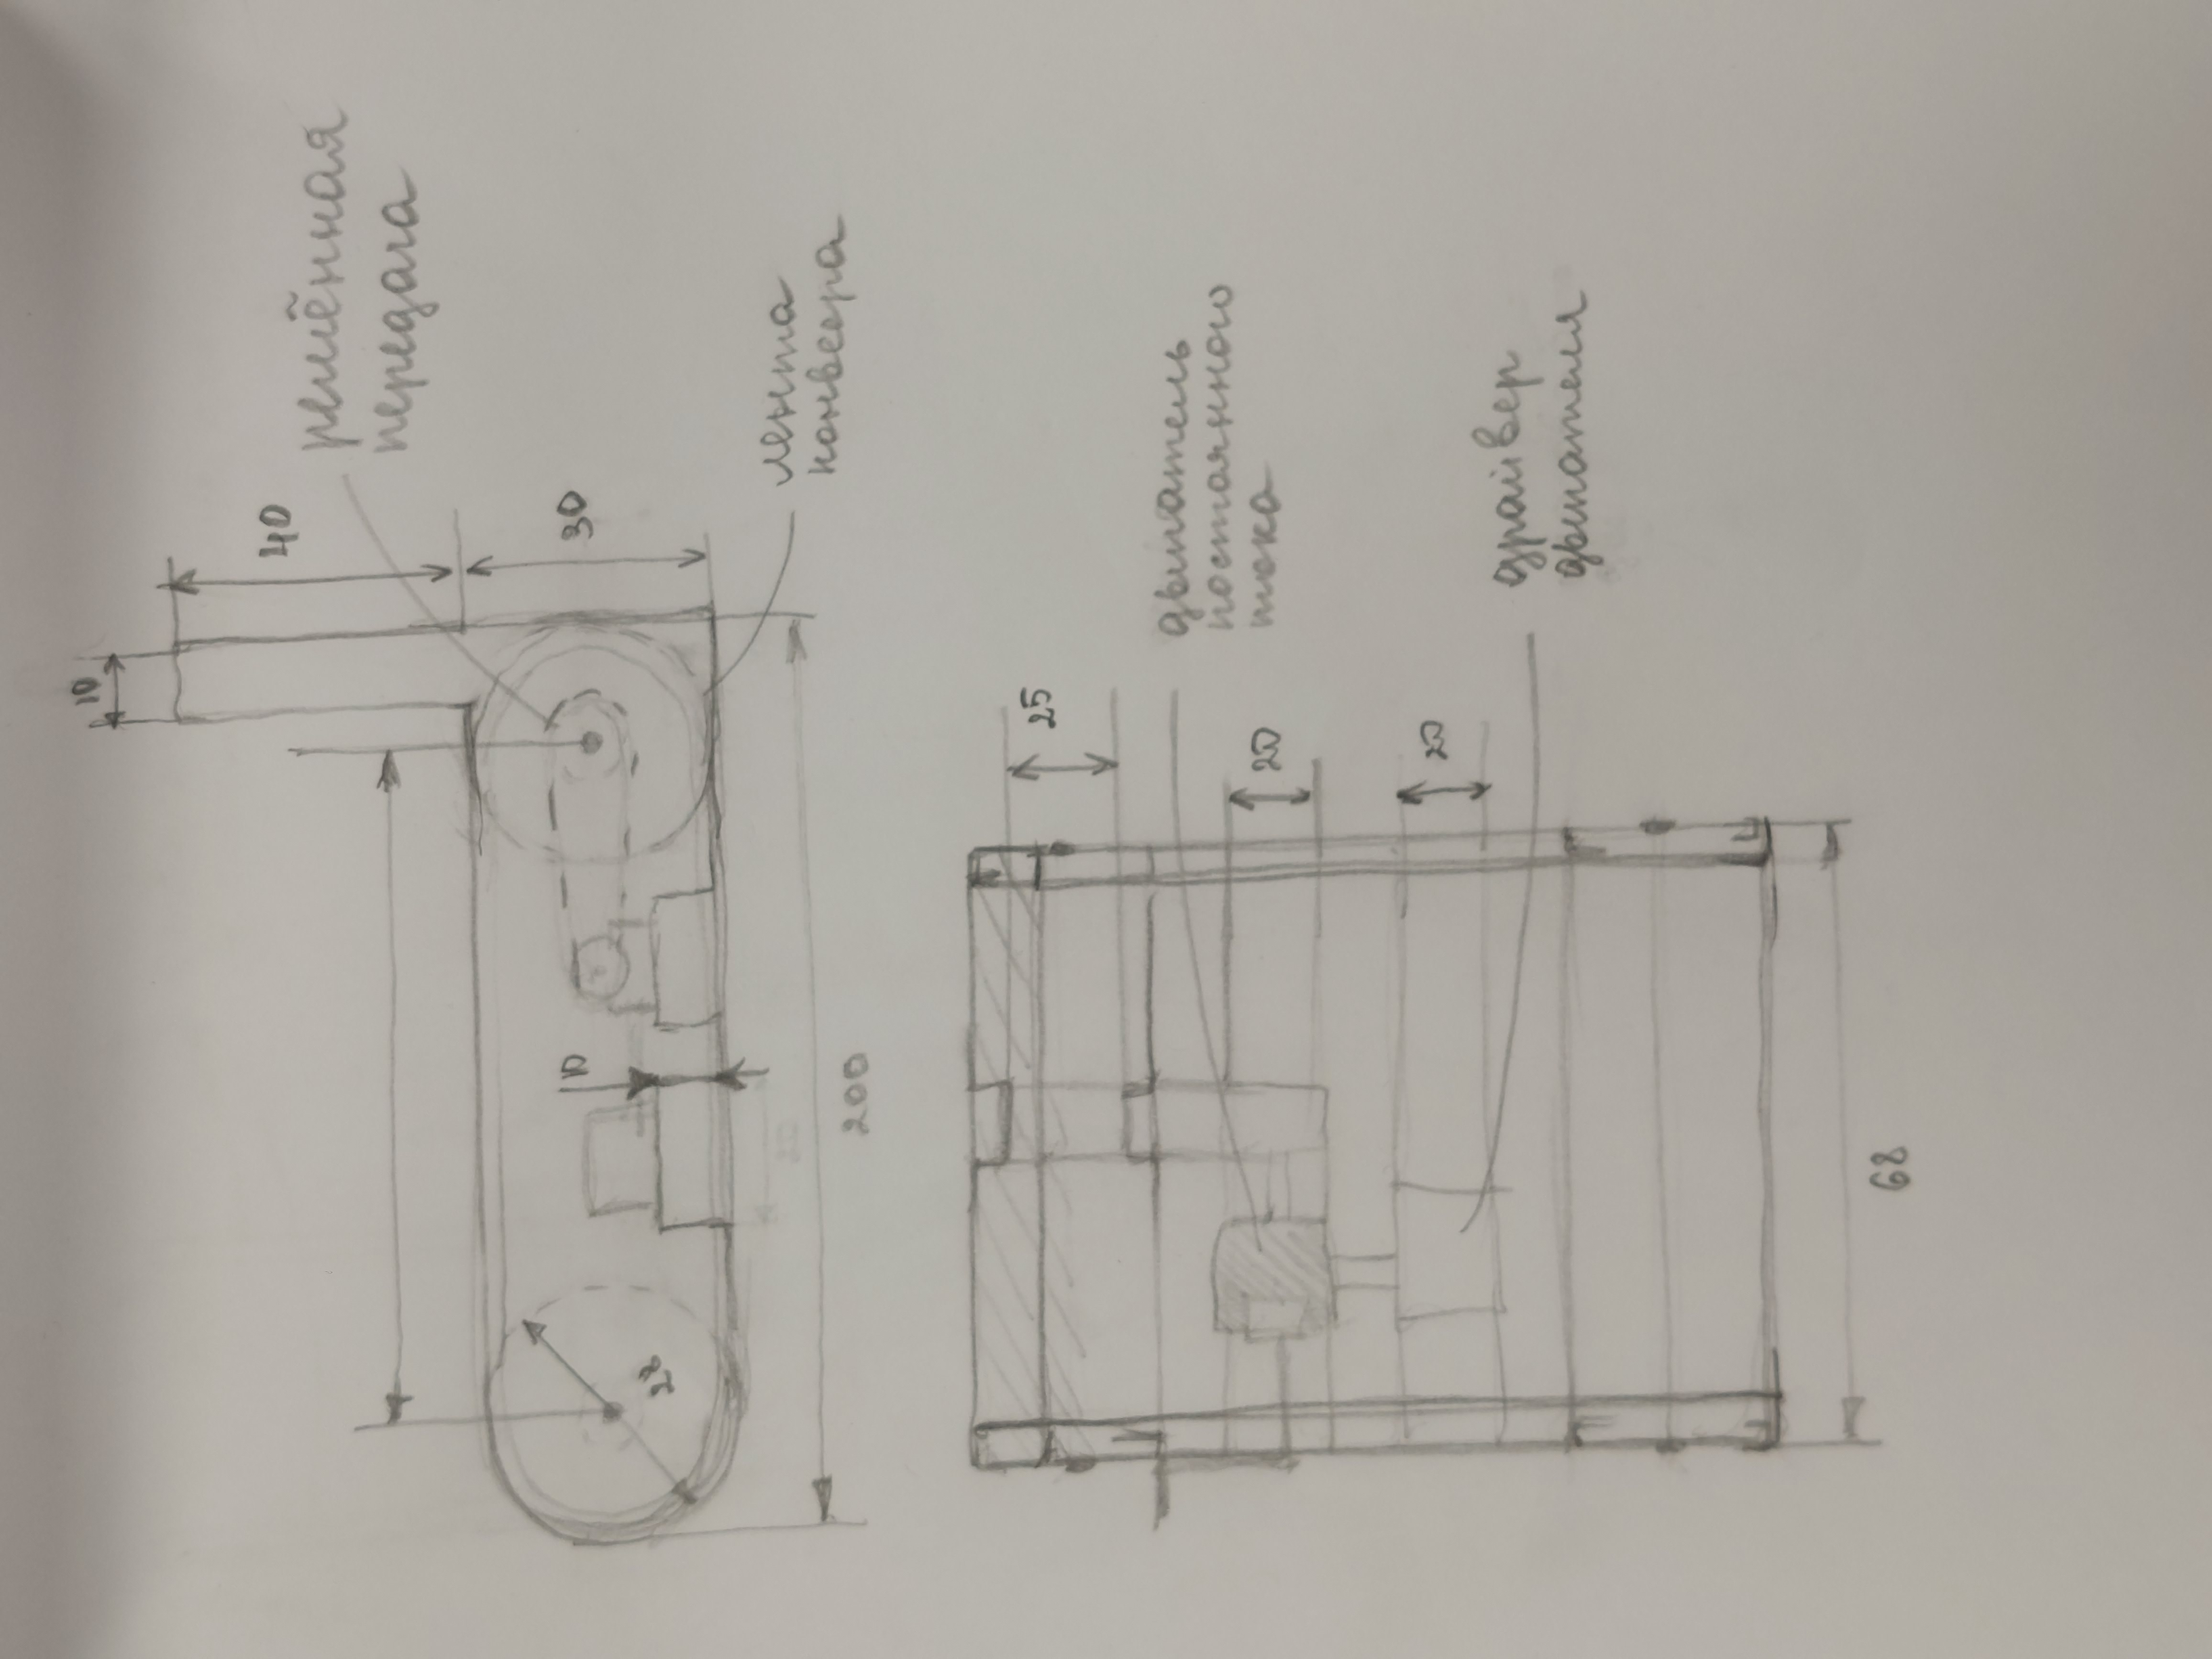 10
40
ремённая
передача
10
30
28
20
лента
конвеера
200
25
двигатель
постоянного
тока
20
20
драйвер
двигателя
68